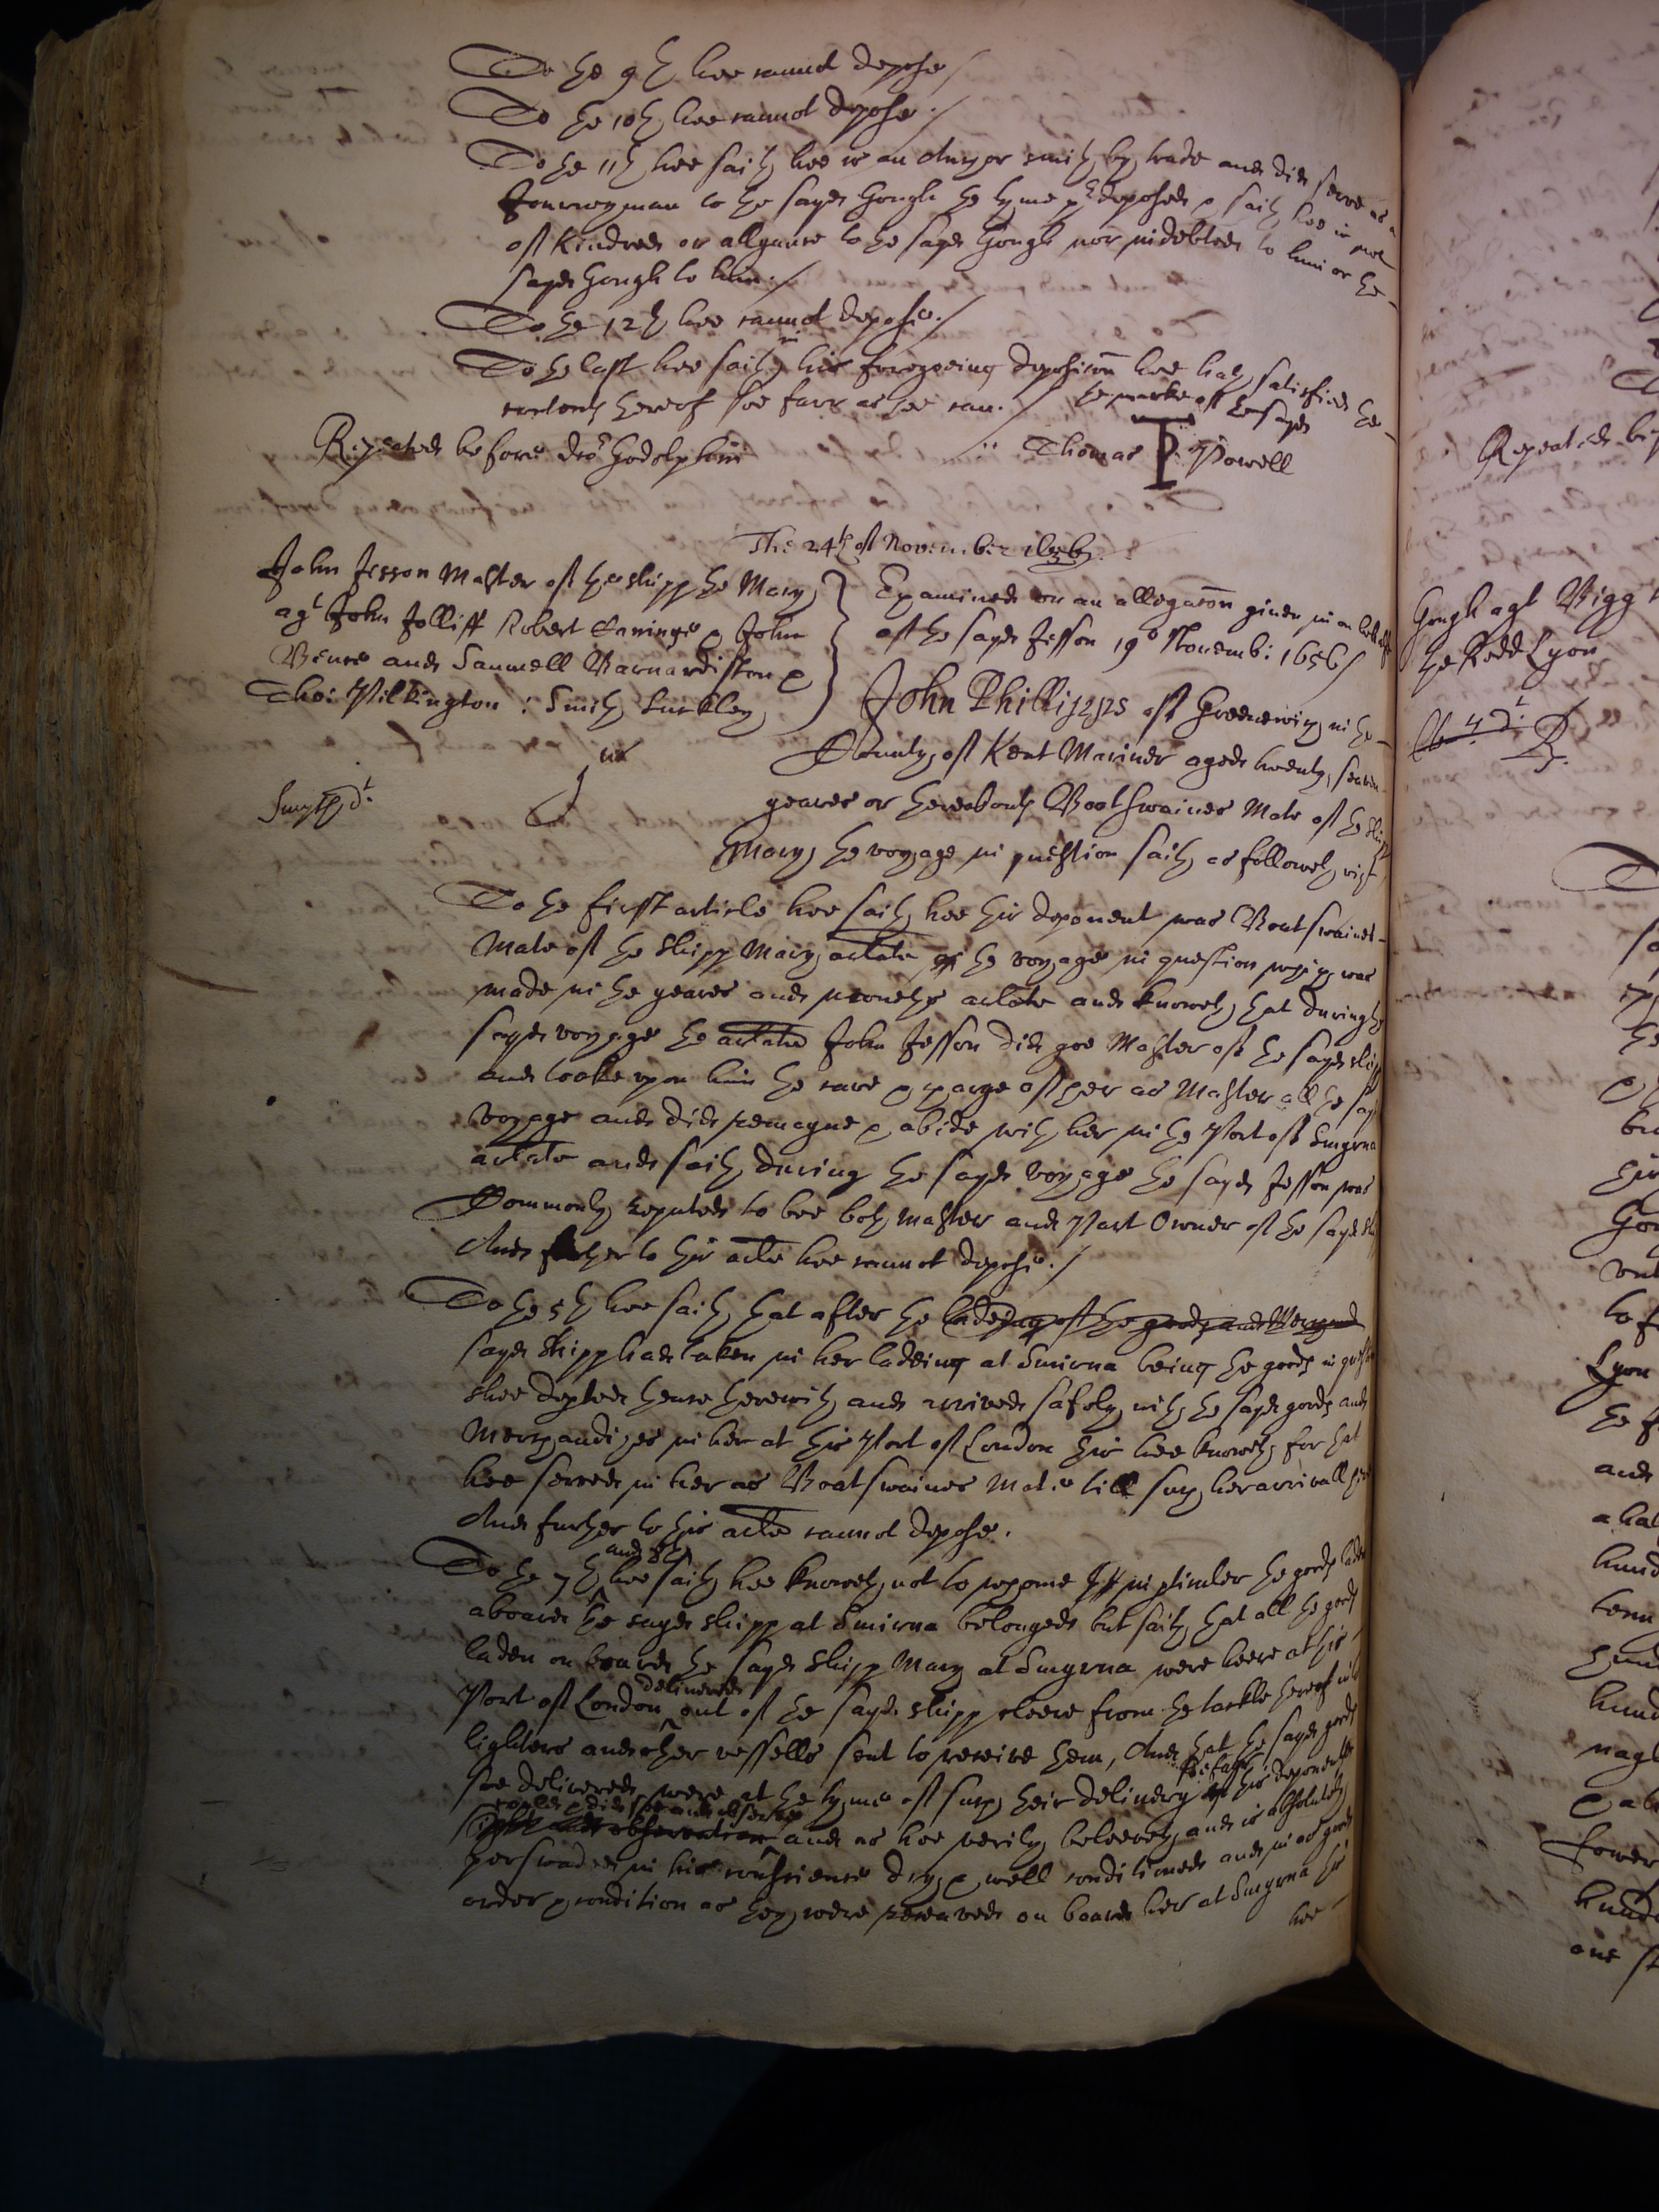 To the 9th hee cannot depose /
To the 10th hee cannot depose ./
To the 11th hee saith hee is an Anchor smith by trade and did serve as a
Journeyman to the sayd Gough the tyme predeposed & saith hee is not
of kindred or allyance to the sayd Gough nor indebted to him or the
sayd Gough to him ./
To the 12th hee cannot depose ./
To the last hee saith in his foregoeing deposicon hee hath satisfied the
contents thereof soe farr as hee can ./
the marke of the sayd
Thomas T Powell
Repeated before dor Godolphin
The 24th of November 1656.
John Jesson Master of the shipp the Mary
agt John Jolliff Robert Canning & John
Bence and Samuell Barnardiston &
Tho: Pilkington : Smith Suckley
Examined on an allegacon given in on behalfe
of the sayd Jesson 19o Novemb: 1656 /
Smyth dt.
1us
John Phillipps of Greenewich in the
County of Kent Mariner aged twenty seaven
yeares or thereabouts Boatswaines Mate of the shipp
Mary the voyage in question saith as followeth vizt
To the first article hee saith hee this deponent was Boatswaines
Mate of the shipp Mary arlate the voyage in question which was
made in the yeares and moneths arlate and knoweth that during the
sayd voyage the arlate John Jesson did goe Master of the sayd shipp
and tooke upon him the care & charge of her as Master all the sayd
voyage and did remayne & abide with her in the Port of Smyrna
arlate and saith during the sayd voyage the sayd Jesson was
Commonly reputed to bee both Master and Part Owner of the sayd shipp
And further to this arle hee cannot depose ./
To the 5th hee saith that after the ladeing of the goods and Merchand
sayd shipp had taken in her ladeing at Smirna being the goods in question
shee departed thence therewith and arrived safely with the sayd goods and
Merchandizes in her at this Port of London this hee knoweth for that
hee served in her as Boatswaines Mate till such her arrivall here
And further to this arle cannot depose.
To the 7th and 8th hee saith hee knoweth not to whome in perticuler the goods laden
aboard the sayd shipp at Smirna belonged but saith that all the goods
laden on board the sayd shipp Mary at Smyrna were heere at this
Port of London delivered out of the sayd shipp cleere from the tackle thereof into
lighters and other vessells sent to receive them, And that the sayd goods
soe delivered were at the tyme of such their delivery soe farr as this deponent
could & did see and observe and as hee verily beleeveth and is absolutely
perswaded in his conscience dry & well conditioned and in as good
order & condition as they were received on board her at Smyrna this
hee
Repeated bef
Gough agt Bigg
the Redd Lyon